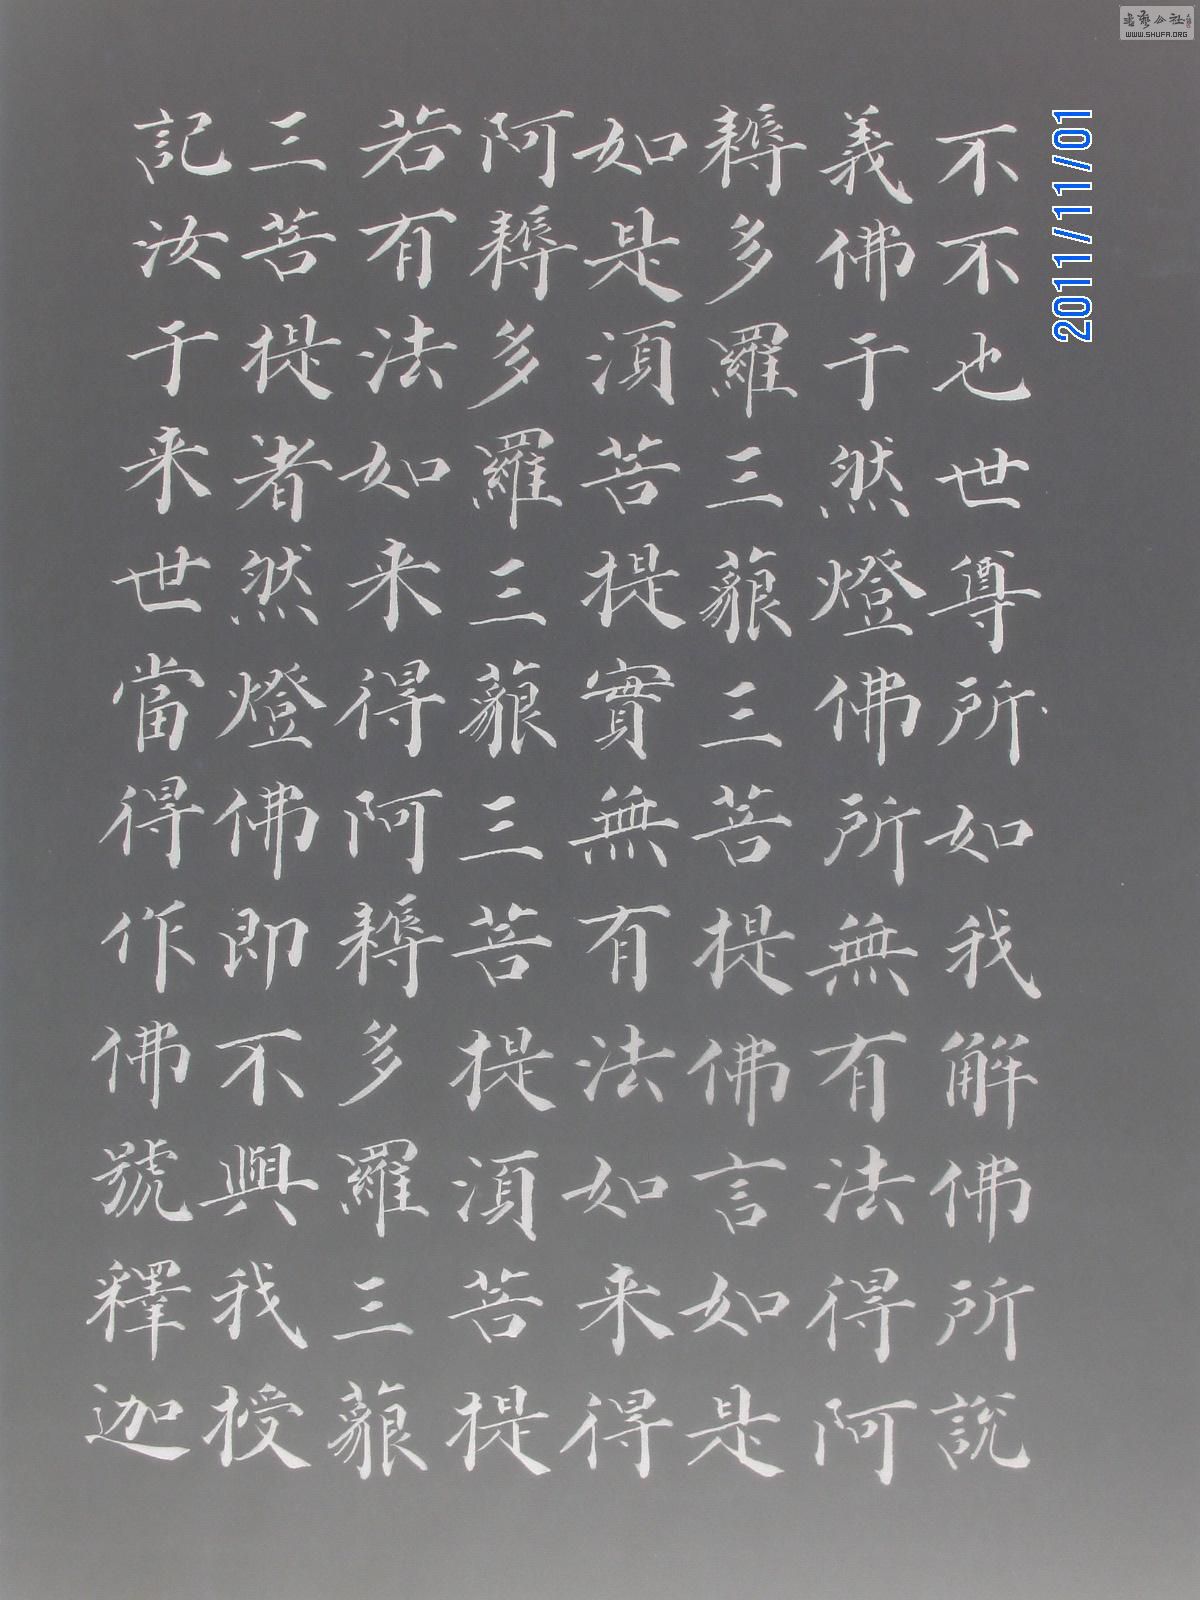 不不也世尊所如我解佛所說
義佛于然燈佛所無有法得阿
耨多羅三藐三菩提佛言如是
如是須菩提實無有法如来得
阿耨多羅三藐三菩提須菩提
若有法如来得阿耨多羅三藐
三菩提者然燈佛即不與我授
記汝于来世當得作佛號釋迦
2011/11/01
書藝公社
WWW.SHUFA.ORG